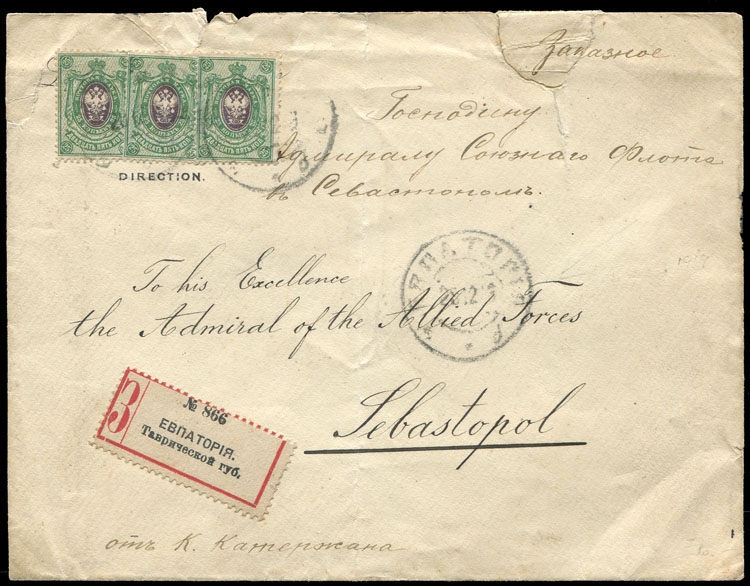 Заказное
Господину
Адмиралу Союзного Флота
въ Севастополь.
ДВАДЦАТЬ ПЯТЬ КОП. ДВАДЦАТЬ ПЯТЬ КОП. ДВАДЦАТЬ ПЯТЬ КОП.
DIRECTION.
ЕВПАТОРІЯ
To his Excellence
the Admiral of the Allied Forces
Sebastopol
З
№ 866
ЕВПАТОРІЯ.
Таврической губ.
отъ К. Катержана